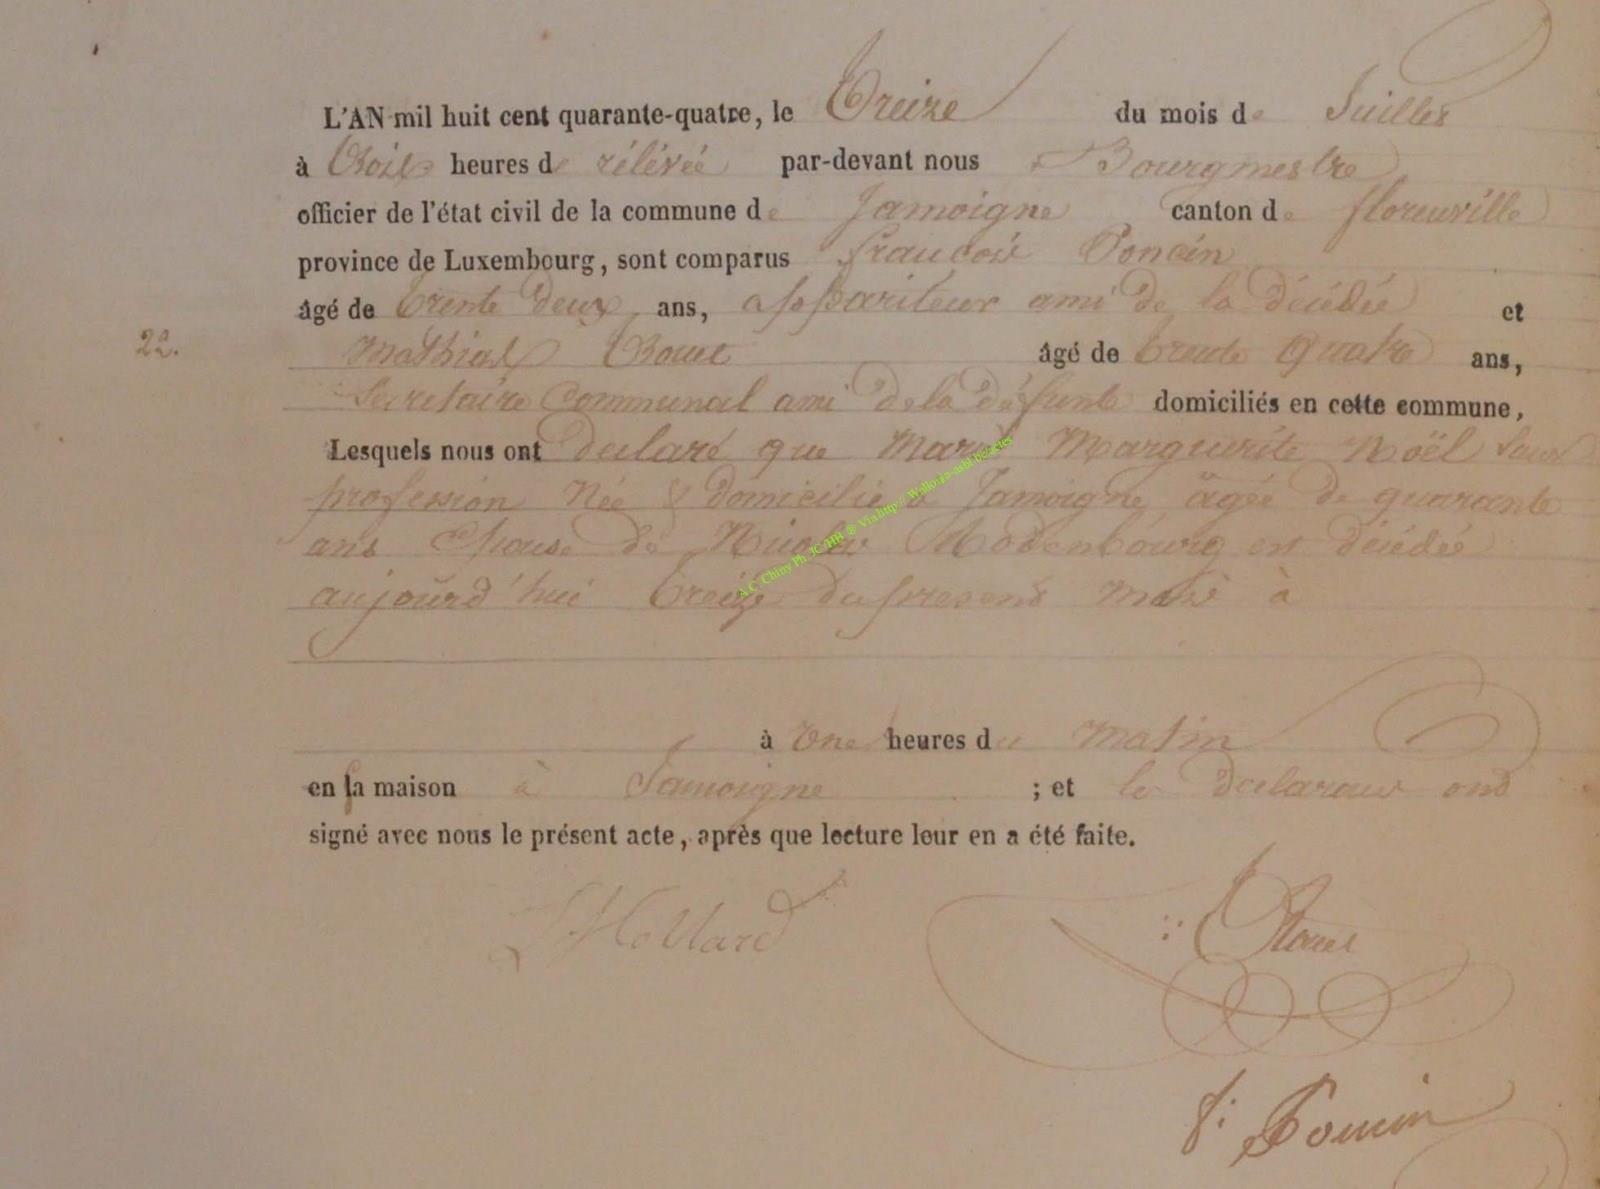 L'AN mil huit cent quarante-quatre, le Treize du mois de Juillet
à trois heures de rélévée par-devant nous Bourgmestre
officier de l'état civil de la commune de Jamoigne canton de florenville
province de Luxembourg, sont comparus françois Poncin
âgé de trente deux ans, appariteur ami de la décédée et
22. Mathias âgé de trente quatre ans,
Secretaire Communal ami de la défunte domiciliés en cette commune,
Lesquels nous ont declaré que Marie Marguerite Noël sans
profession Née & domiciliée à Jamoigne agée de quarante
ans Epouse de Nicolas est décédée
aujourd'hui treize du present mois à
à une heures du matin
en sa maison à Jamoigne ; et les declarans ont
signé avec nous le présent acte, après que lecture leur en a été faite.
f: Poncin
A.C. Chiny Ph. JC/HH @ Via http://Wallonia-asbl.be/actes